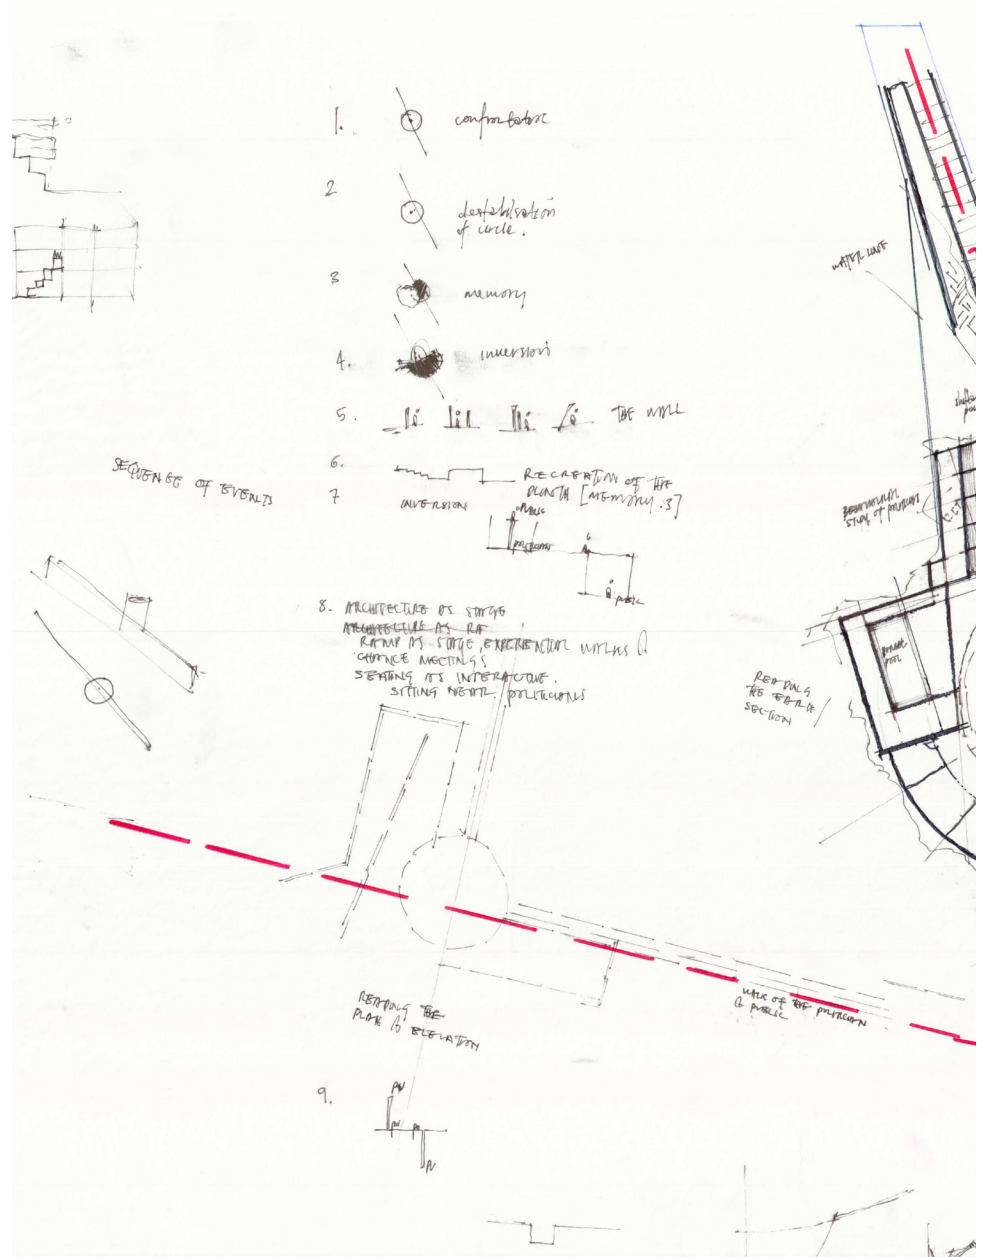 1. confrontation
2 destabilisation
of circle.
3 memory
4. inversion
5. THE WALL
SEQUENSE OF EVENTS
6. RECREATION OF THE
PLINTH [MEMORY .3]
7 INVERSION
PUBLIC
POLITICIANS
PUBLIC
8. ARCHITECTURE AS STAGE
ARCHITECTURE AS RA
RAMP AS STAGE, EXPERIENTIAL WALKS
CHANCE MEETINGS
SEATING AS INTERACTIVE.
SITTING NEAR POLITICIANS
WATER
BEHAVIOURAL
STUDY of POLITICIANS
POOL
READING
THE EARTH
SECTION
WALK OF THE POLITICIAN
& PUBLIC
READING THE
PLAN & ELEVATION
9.